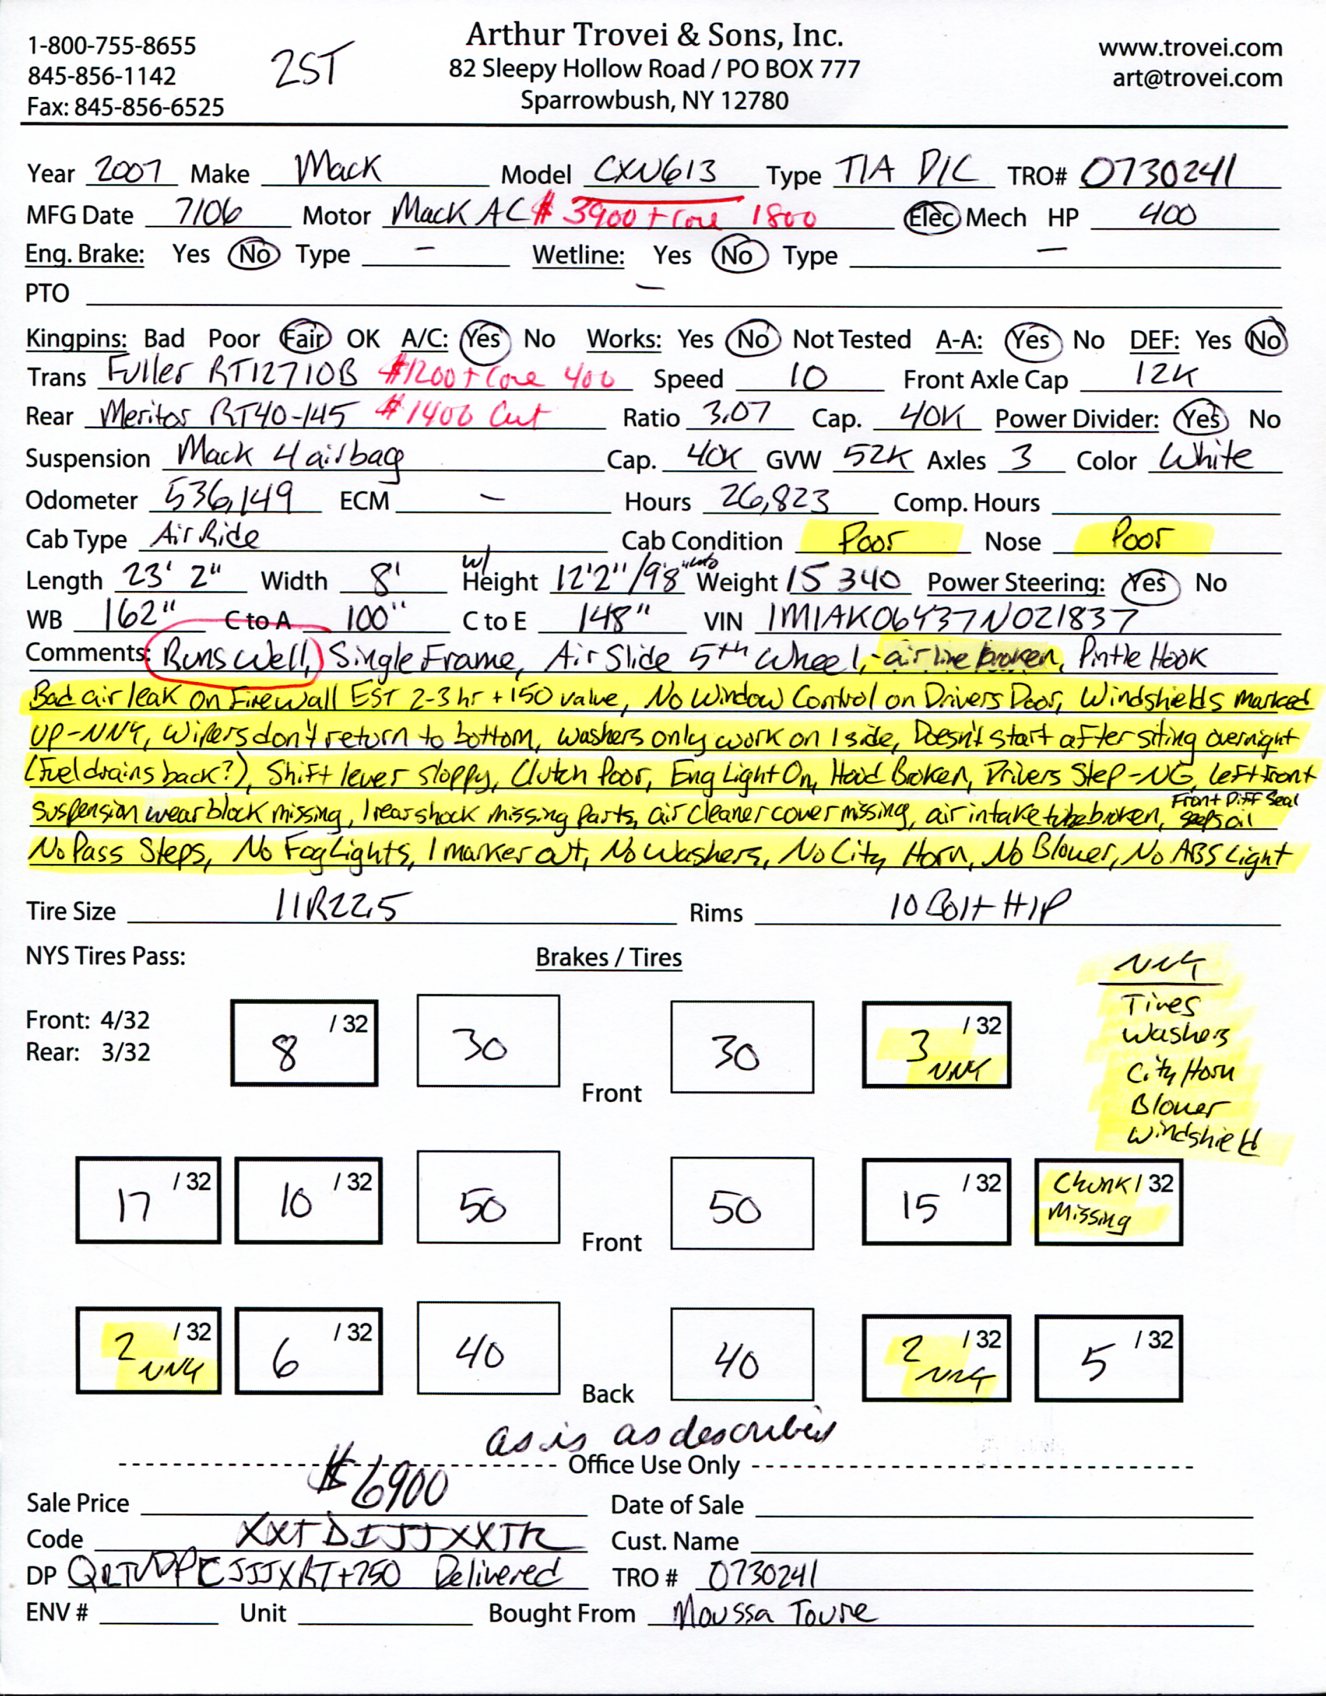 1-800-755-8655
845-856-1142
Fax: 845-856-6525
2ST
Arthur Trovei & Sons, Inc.
82 Sleepy Hollow Road / PO BOX 777
Sparrowbush, NY 12780
www.trovei.com
art@trovei.com
Year 2007 Make Mack Model CXN613 Type T/A D/C TRO# 0730241
MFG Date 7/06 Motor Mack AC $3900 + Core 1800 Elec Mech HP 400
Eng. Brake: Yes No Type - Wetline: Yes No Type -
PTO -
Kingpins: Bad Poor Fair OK A/C: Yes No Works: Yes No Not Tested A-A: Yes No DEF: Yes No
Trans Fuller RT12710B $1200 + Core 400 Speed 10 Front Axle Cap 12K
Rear Meritor RT40-145 $1400 Cut Ratio 3.07 Cap. 40K Power Divider: Yes No
Suspension Mack 4 airbag Cap. 40K GVW 52K Axles 3 Color White
Odometer 536,149 ECM - Hours 26,823 Comp. Hours
Cab Type Air Ride Cab Condition Poor Nose Poor
Length 23' 2" Width 8' w/ Height 12'2"/98" w/o Weight 15340 Power Steering: Yes No
WB 162" C to A 100" C to E 148" VIN 1M1AK06Y37N021837
Comments: Runs Well, Single Frame, Air Slide 5th Wheel, - air line broken, Pintle Hook
Bad air leak on Firewall EST 2-3 hr + 150 valve, No Window Control on Drivers Door, Windshields marked
UP-NNY, Wipers don't return to bottom, washers only work on 1 side, Doesn't start after siting overnight
(Fuel drains back?), Shift lever sloppy, Clutch Poor, Eng Light On, Hood Broken, Drivers Step-NG, left front
suspension wear block missing, 1 rear shock missing parts, air cleaner cover missing, air intake tube broken, Front Diff Seal seeps oil
No Pass Steps, No Fog Lights, 1 marker out, No Washers, No City Horn, No Blower, No ABS Light
Tire Size 11R22.5 Rims 10 Bolt H/P
NYS Tires Pass: Brakes / Tires
Front: 4/32
Rear: 3/32
8 /32 30 Front 30 3 /32 NNY
NNY
Tires
Washers
City Horn
Blower
Windshield
17 /32 10 /32 50 Front 50 15 /32 Chunk /32 Missing
2 /32 NNY 6 /32 40 Back 40 2 /32 NNY 5 /32
as is as described
Office Use Only
Sale Price $6900 Date of Sale
Code Cust. Name
DP +750 Delivered TRO # 0730241
ENV # Unit Bought From Moussa Toure